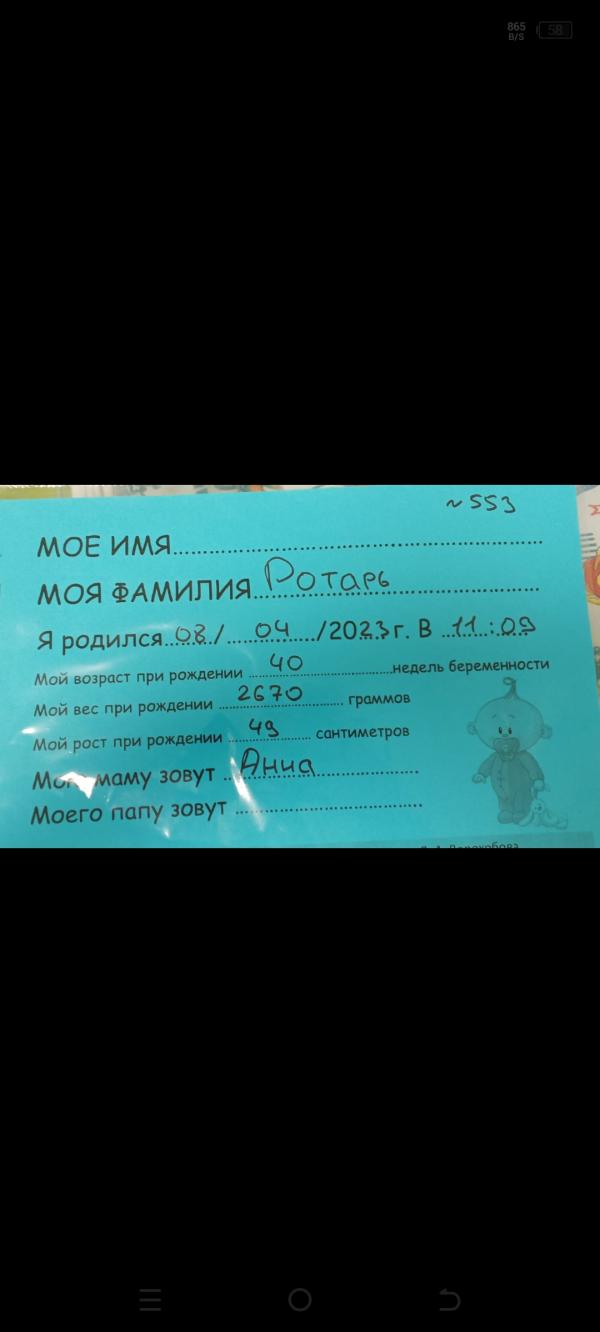 865
B/S
58
~553
МОЕ ИМЯ
МОЯ ФАМИЛИЯ Ротарь
Я родился 08/ 04 /2023г. В 11:09
Мой возраст при рождении 40 недель беременности
Мой вес при рождении 2670 граммов
Мой рост при рождении 49 сантиметров
маму зовут Анна
Моего папу зовут